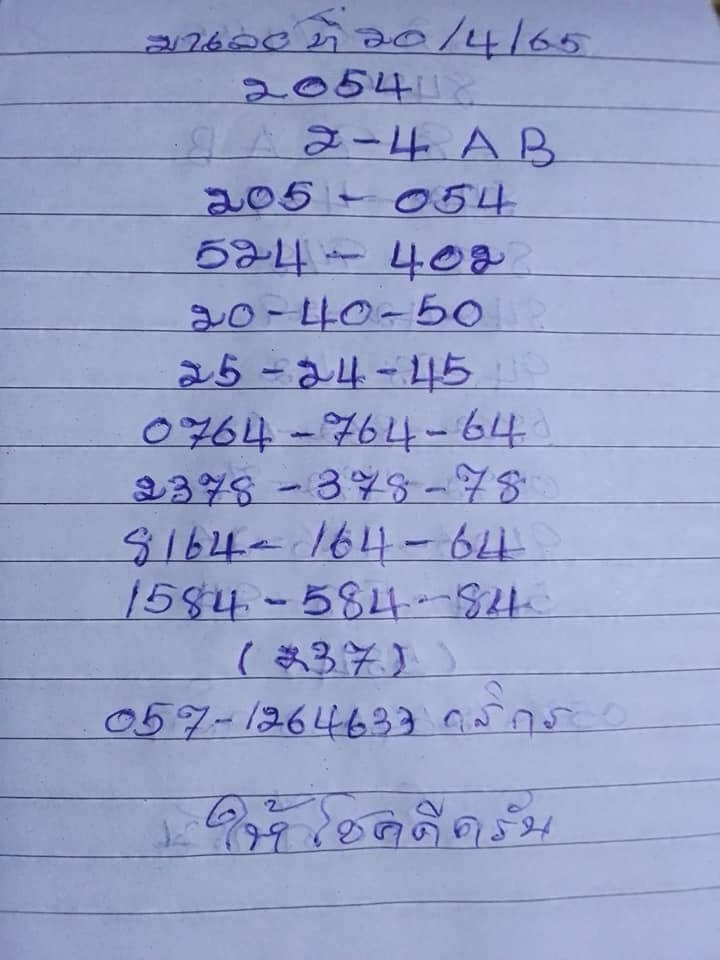 มาเลย์ ที่ 20/4/65
2054
2-4 A B
205 - 054
524 - 402
20-40-50
25 -24 -45
0764 -764 -64
2378 -378 -78
8164- 164 - 64
1584 -584 -84
(237)
057-1264633 กสิกร
ให้โชคดีครับ